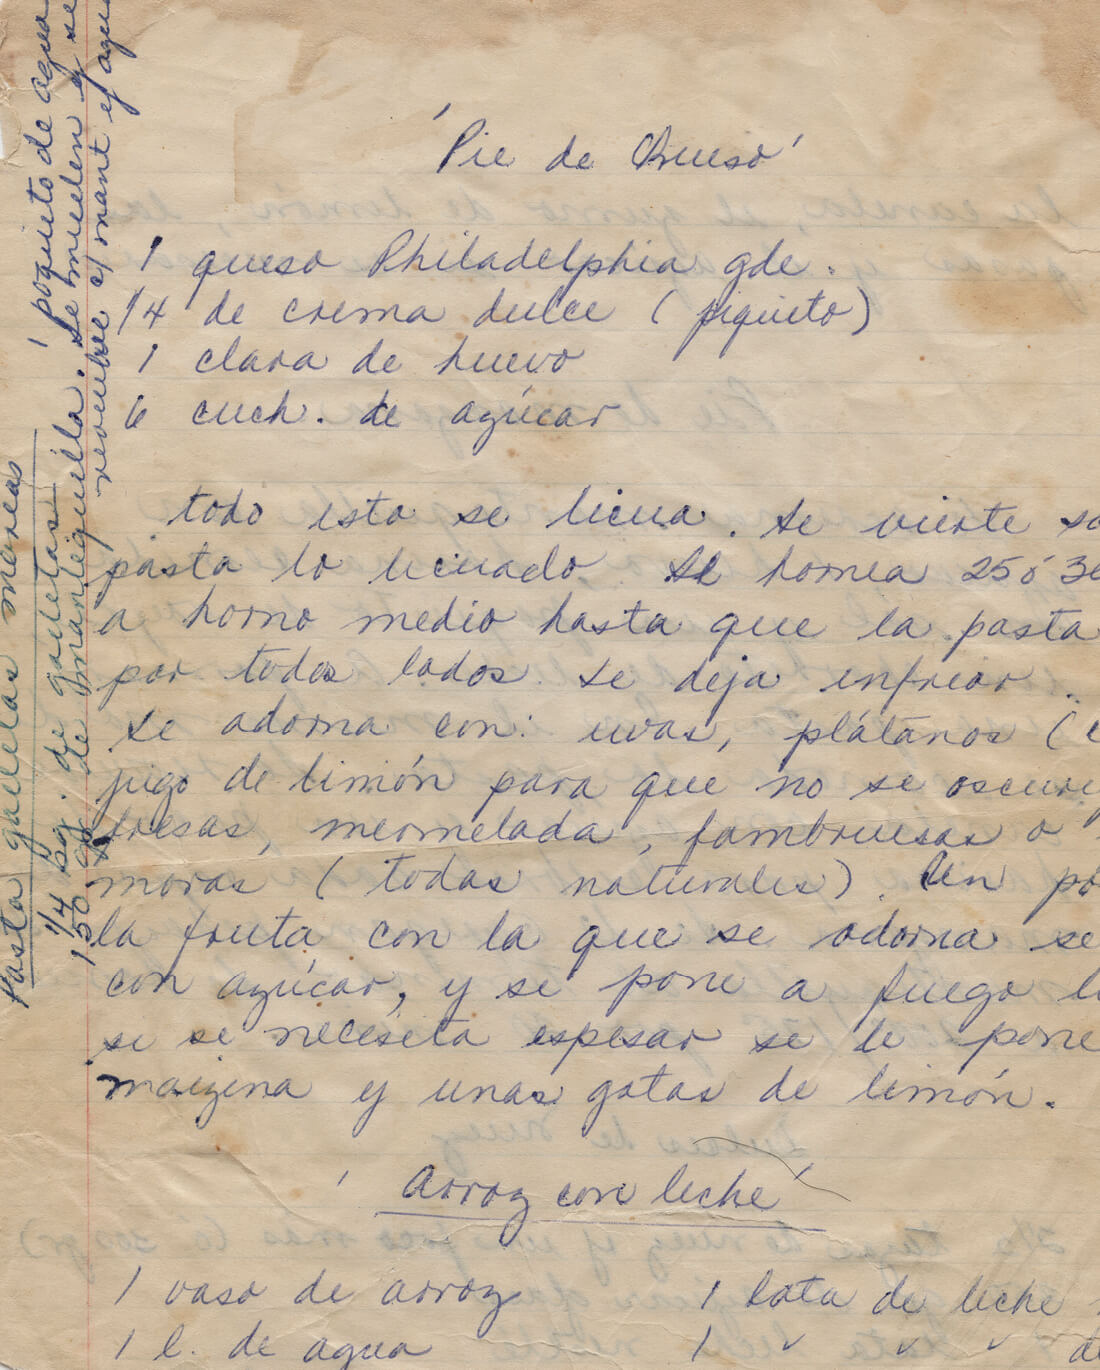 'Pie de Queso'
1 queso Philadelphia gde.
1/4 de crema dulce (piquito)
1 clara de huevo
6 cuch. de azúcar
todo esto se licua. Se vierte so
pasta lo licuado. Se hornea 25 ó 30
a horno medio hasta que la pasta
por todos lados. Se deja enfriar.
Se adorna con: uvas, plátanos (c
jugo de limón para que no se oscurez
fresas, mermelada, fambruesas o
moras (todas naturales). Un po
la fruta con la que se adorna se
con azúcar, y se pone a fuego le
si se necesita espesar se le pone
maizena y unas gotas de limón.
'Arroz con leche'
1 vaso de arroz 1 lata de leche
1 l. de agua 1 " " " de
Pasta galletas marías
1/4 kg. de galletas 1 poquito de agua
150 gr. de mantequilla. Se muelen y se
recubre c/ mant y agua